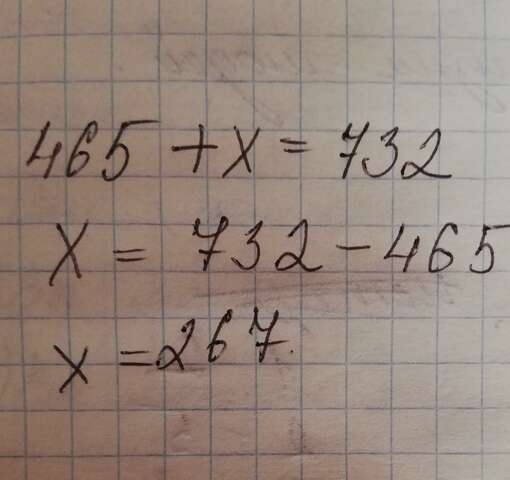 465 + x = 732
x = 732 - 465
x = 267.